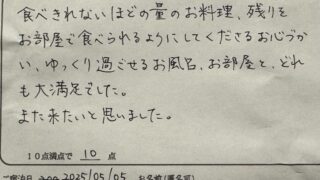 食べきれないほどの量のお料理、残りを
お部屋で食べられるようにしてくださるお心づか
い、ゆっくり過ごせるお風呂、お部屋と、どれ
も大満足でした。
また来たいと思いました。
10点満点で 10 点
ご宿泊日 2025/05/05 お名前(匿名可)